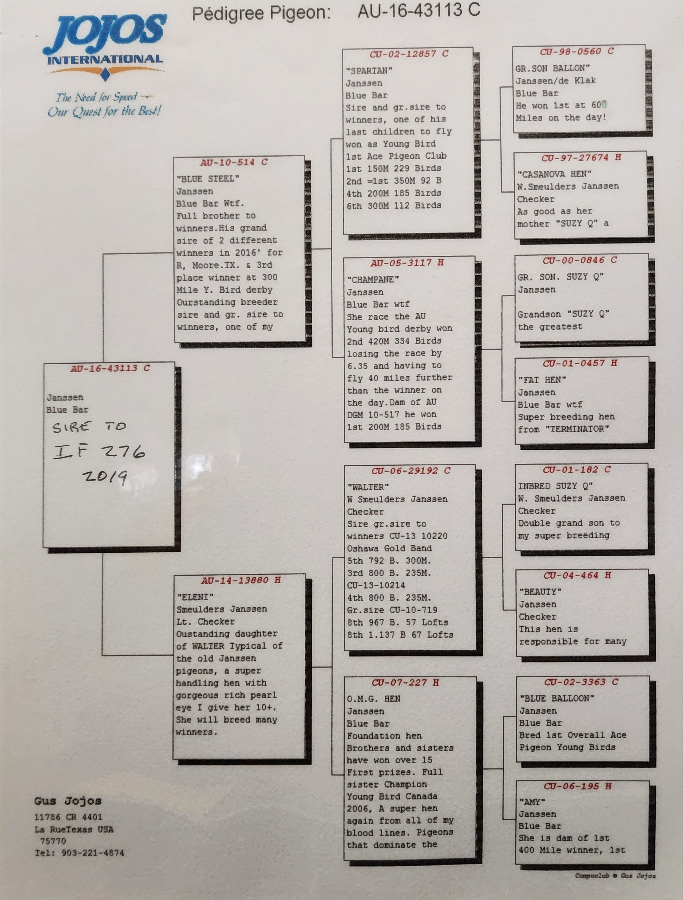 JOJOS
INTERNATIONAL
The Need for Speed ~
Our Quest for the Best!
Pédigree Pigeon: AU-16-43113 C
AU-16-43113 C
Janssen
Blue Bar
SIRE TO
IF 276
2019
AU-10-514 C
"BLUE STEEL"
Janssen
Blue Bar Wtf.
Full brother to
winners.His grand
sire of 2 different
winners in 2016' for
R, Moore.TX. & 3rd
place winner at 300
Mile Y. Bird derby
Ourstanding breeder
sire and gr. sire to
winners, one of my
AU-14-13880 H
"ELENI"
Smeulders Janssen
Lt. Checker
Oustanding daughter
of WALTER Typical of
the old Janssen
pigeons, a super
handling hen with
gorgeous rich pearl
eye I give her 10+.
She will breed many
winners.
CU-02-12857 C
"SPARTAN"
Janssen
Blue Bar
Sire and gr.sire to
winners, one of his
last children to fly
won as Young Bird
1st Ace Pigeon Club
1st 150M 229 Birds
2nd =1st 350M 92 B
4th 200M 185 Birds
6th 300M 112 Birds
AU-05-3117 H
"CHAMPANE"
Janssen
Blue Bar wtf
She race the AU
Young bird derby won
2nd 420M 334 Birds
losing the race by
6.35 and having to
fly 40 miles further
than the winner on
the day.Dam of AU
DGM 10-517 he won
1st 200M 185 Birds
CU-06-29192 C
"WALTER"
W Smeulders Janssen
Checker
Sire gr.sire to
winners CU-13 10220
Oshawa Gold Band
5th 792 B. 300M.
3rd 800 B. 235M.
CU-13-10214
4th 800 B. 235M.
Gr.sire CU-10-719
8th 967 B. 57 Lofts
8th 1.137 B 67 Lofts
CU-07-227 H
O.M.G. HEN
Janssen
Blue Bar
Foundation hen
Brothers and sisters
have won over 15
First prizes. Full
sister Champion
Young Bird Canada
2006, A super hen
again from all of my
blood lines. Pigeons
that dominate the
CU-98-0560 C
GR.SON BALLON"
Janssen/de Klak
Blue Bar
He won 1st at 600
Miles on the day!
CU-97-27674 H
"CASANOVA HEN"
W.Smeulders Janssen
Checker
As good as her
mother "SUZY Q" a
CU-00-0846 C
GR. SON. SUZY Q"
Janssen
Grandson "SUZY Q"
the greatest
CU-01-0457 H
"FAT HEN"
Janssen
Blue Bar wtf
Super breeding hen
from "TERMINATOR"
CU-01-182 C
INBRED SUZY Q"
W. Smeulders Janssen
Checker
Double grand son to
my super breeding
CU-04-464 H
"BEAUTY"
Janssen
Checker
This hen is
responsible for many
CU-02-3363 C
"BLUE BALLOON"
Janssen
Blue Bar
Bred 1st Overall Ace
Pigeon Young Birds
CU-06-195 H
"AMY"
Janssen
Blue Bar
She is dam of 1st
400 Mile winner, 1st
Gus Jojos
11786 CR 4401
La RueTexas USA
75770
Tel: 903-221-4874
Compuclub © Gus Jojos